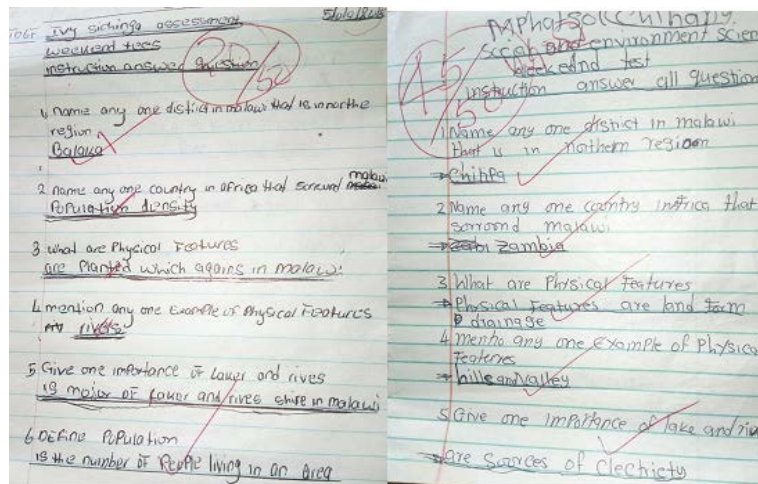 ivy sichinga assessment
weekend tees
instruction answer question
20/50
1, name any one district in malawi that is in northe
region
Balaka
2 name any one country in africa that soround malawi
Population density
3 what are Physical Features
are Planted which agains in malawi.
4 mention any one Example of Physical Features
rives
5 Give one importance of Laker and rives
is major of Laker and rives shire in malawi
6 DEFine Population
is the number of People living in an area
45/50
social and environment scien
weekednd test
instruction answer all question
1 Name any one district in malawi
that is in nothern region
→Chitipa
2 Name any one country in africa that
sorrond malawi
Zambia
3 What are Phisical Features
→Physical Features are land form
drainage
4 mentio any one Example of Physica
Feateries
→hills and Valley
5 Give one importance of lake and riv
→are Sources of Elechicty